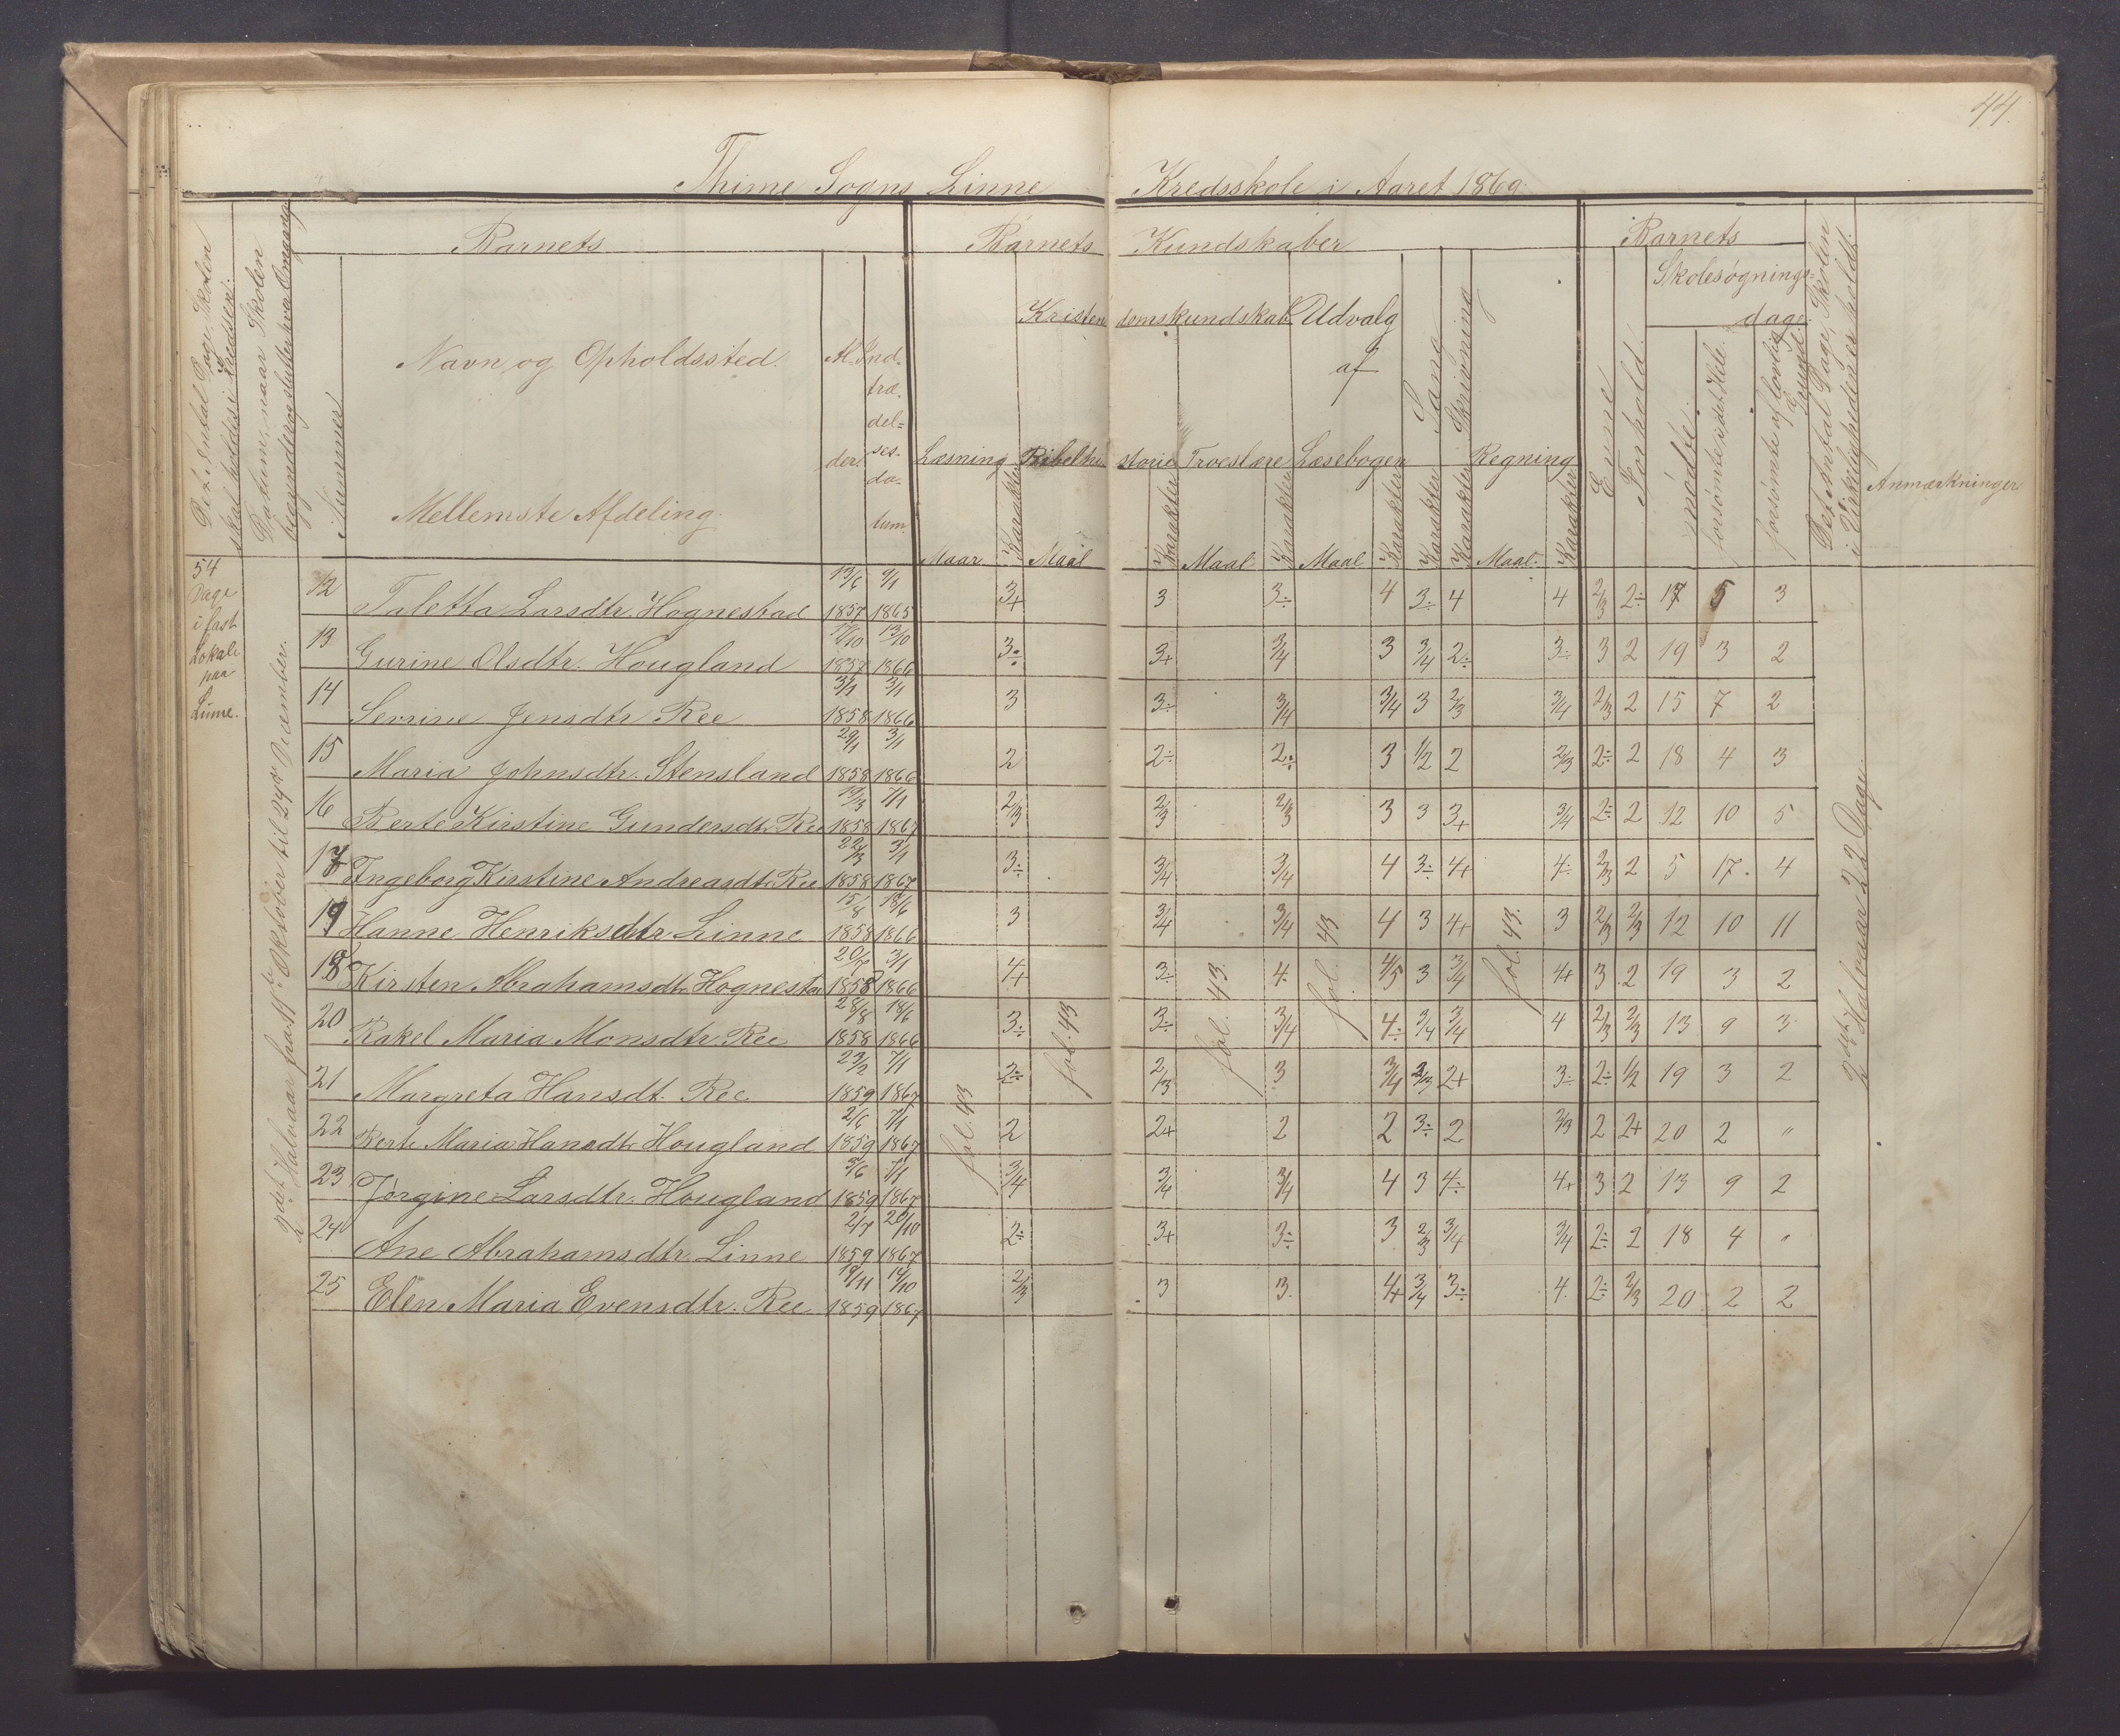 44.
Thime Sogns Linne Kredsskole i Aaret 1869.
Det Antal Dage, Skolen skal holdes i Kredsen.
Datum, naar Skolen begynder og slutter hver Omgang
Barnets
Nummer
Navn og Opholdssted.
Mellemste Afdeling.
Al-
der.
Ind-
træ-
del-
ses-
da-
tum
Barnets Kundskaber
Læsning
Kristendomskundskab
Bibelhistorie
Troeslære
Udvalg
af
Læsebogen
Sang
Skrivning
Regning
Maal Karakter Maal Karakter Maal Karakter Maal Karakter Karakter Karakter Maal Karakter
Barnets
Evne
Forhold.
Skolesøgnings-
dage.
mødte.
forsømte i det Hele.
forsømte af lovlig Grund.
Det Antal Dage, Skolen i Virkeligheden er holdt.
Anmærkninger.
54
Dage
i fast
Lokale
paa
Lime.
2det Halvaar fra 11te Oktober til 24de December.
fol. 43
fol. 43
fol. 43
fol. 43
fol. 43.
2det Halvaar 22 Dage.
12 Taletta Larsdtr. Hognestad 13/6 1857 9/1 1865 3+ 3 3÷ 4 3÷ 4 4 2/3 2÷ 17 5 3
13 Gurine Olsdtr. Hougland 17/10 1857 13/10 1866 3÷ 3+ 3/4 3 3/4 2÷ 3÷ 3 2 19 3 2
14 Serine Jensdtr. Ree 3/1 1858 3/1 1866 3 3÷ 3/4 3/4 3 2/3 3/4 2/3 2 15 7 2
15 Maria Johnsdtr. Stensland 29/1 1858 3/1 1866 2 2÷ 2÷ 3 1/2 2 2/3 2÷ 2 18 4 3
16 Berte Kirstine Gundersdtr. Ree 19/3 1858 7/1 1867 2/3 2/3 2/3 3 3 3+ 3/4 2÷ 2 12 10 5
17 Ingeborg Kirstine Andreasdtr. Ree 22/3 1858 3/1 1867 3÷ 3/4 3/4 4 3÷ 4+ 4÷ 2/3 2 5 17 4
19 Hanne Henriksdtr. Linne 15/8 1858 18/6 1866 3 3/4 3/4 4 3 4+ 3 2/3 2/3 12 10 11
18 Kirsten Abrahamsdtr. Hognestad 20/7 1858 3/1 1866 4+ 3÷ 4 4/5 3 3/4 4+ 3 2 19 3 2
20 Rakel Maria Monsdtr. Ree 28/8 1858 18/6 1866 3÷ 3÷ 3/4 4÷ 3/4 3/4 4 2/3 2/3 13 9 3
21 Margreta Hansdt. Ree 23/2 1859 7/1 1867 2÷ 2/3 3 3/4 2/3 2+ 3÷ 2÷ 1/2 19 3 2
22 Berte Maria Hansdtr. Hougland 2/6 1859 7/1 1867 2 2+ 2 2 3÷ 2 2/3 2 2+ 20 2 "
23 Jørgine Larsdtr. Hougland 5/6 1859 7/1 1867 3/4 3/4 3/4 4 3 4÷ 4+ 3 2 13 9 2
24 Ane Abrahamsdtr. Linne 2/7 1859 20/10 1867 2÷ 3+ 3÷ 3 2/3 3/4 3/4 2÷ 2 18 4 "
25 Elen Maria Evensdtr. Ree 19/11 1859 14/10 1867 2/3 3 3 4+ 3/4 3÷ 4 2÷ 2/3 20 2 2